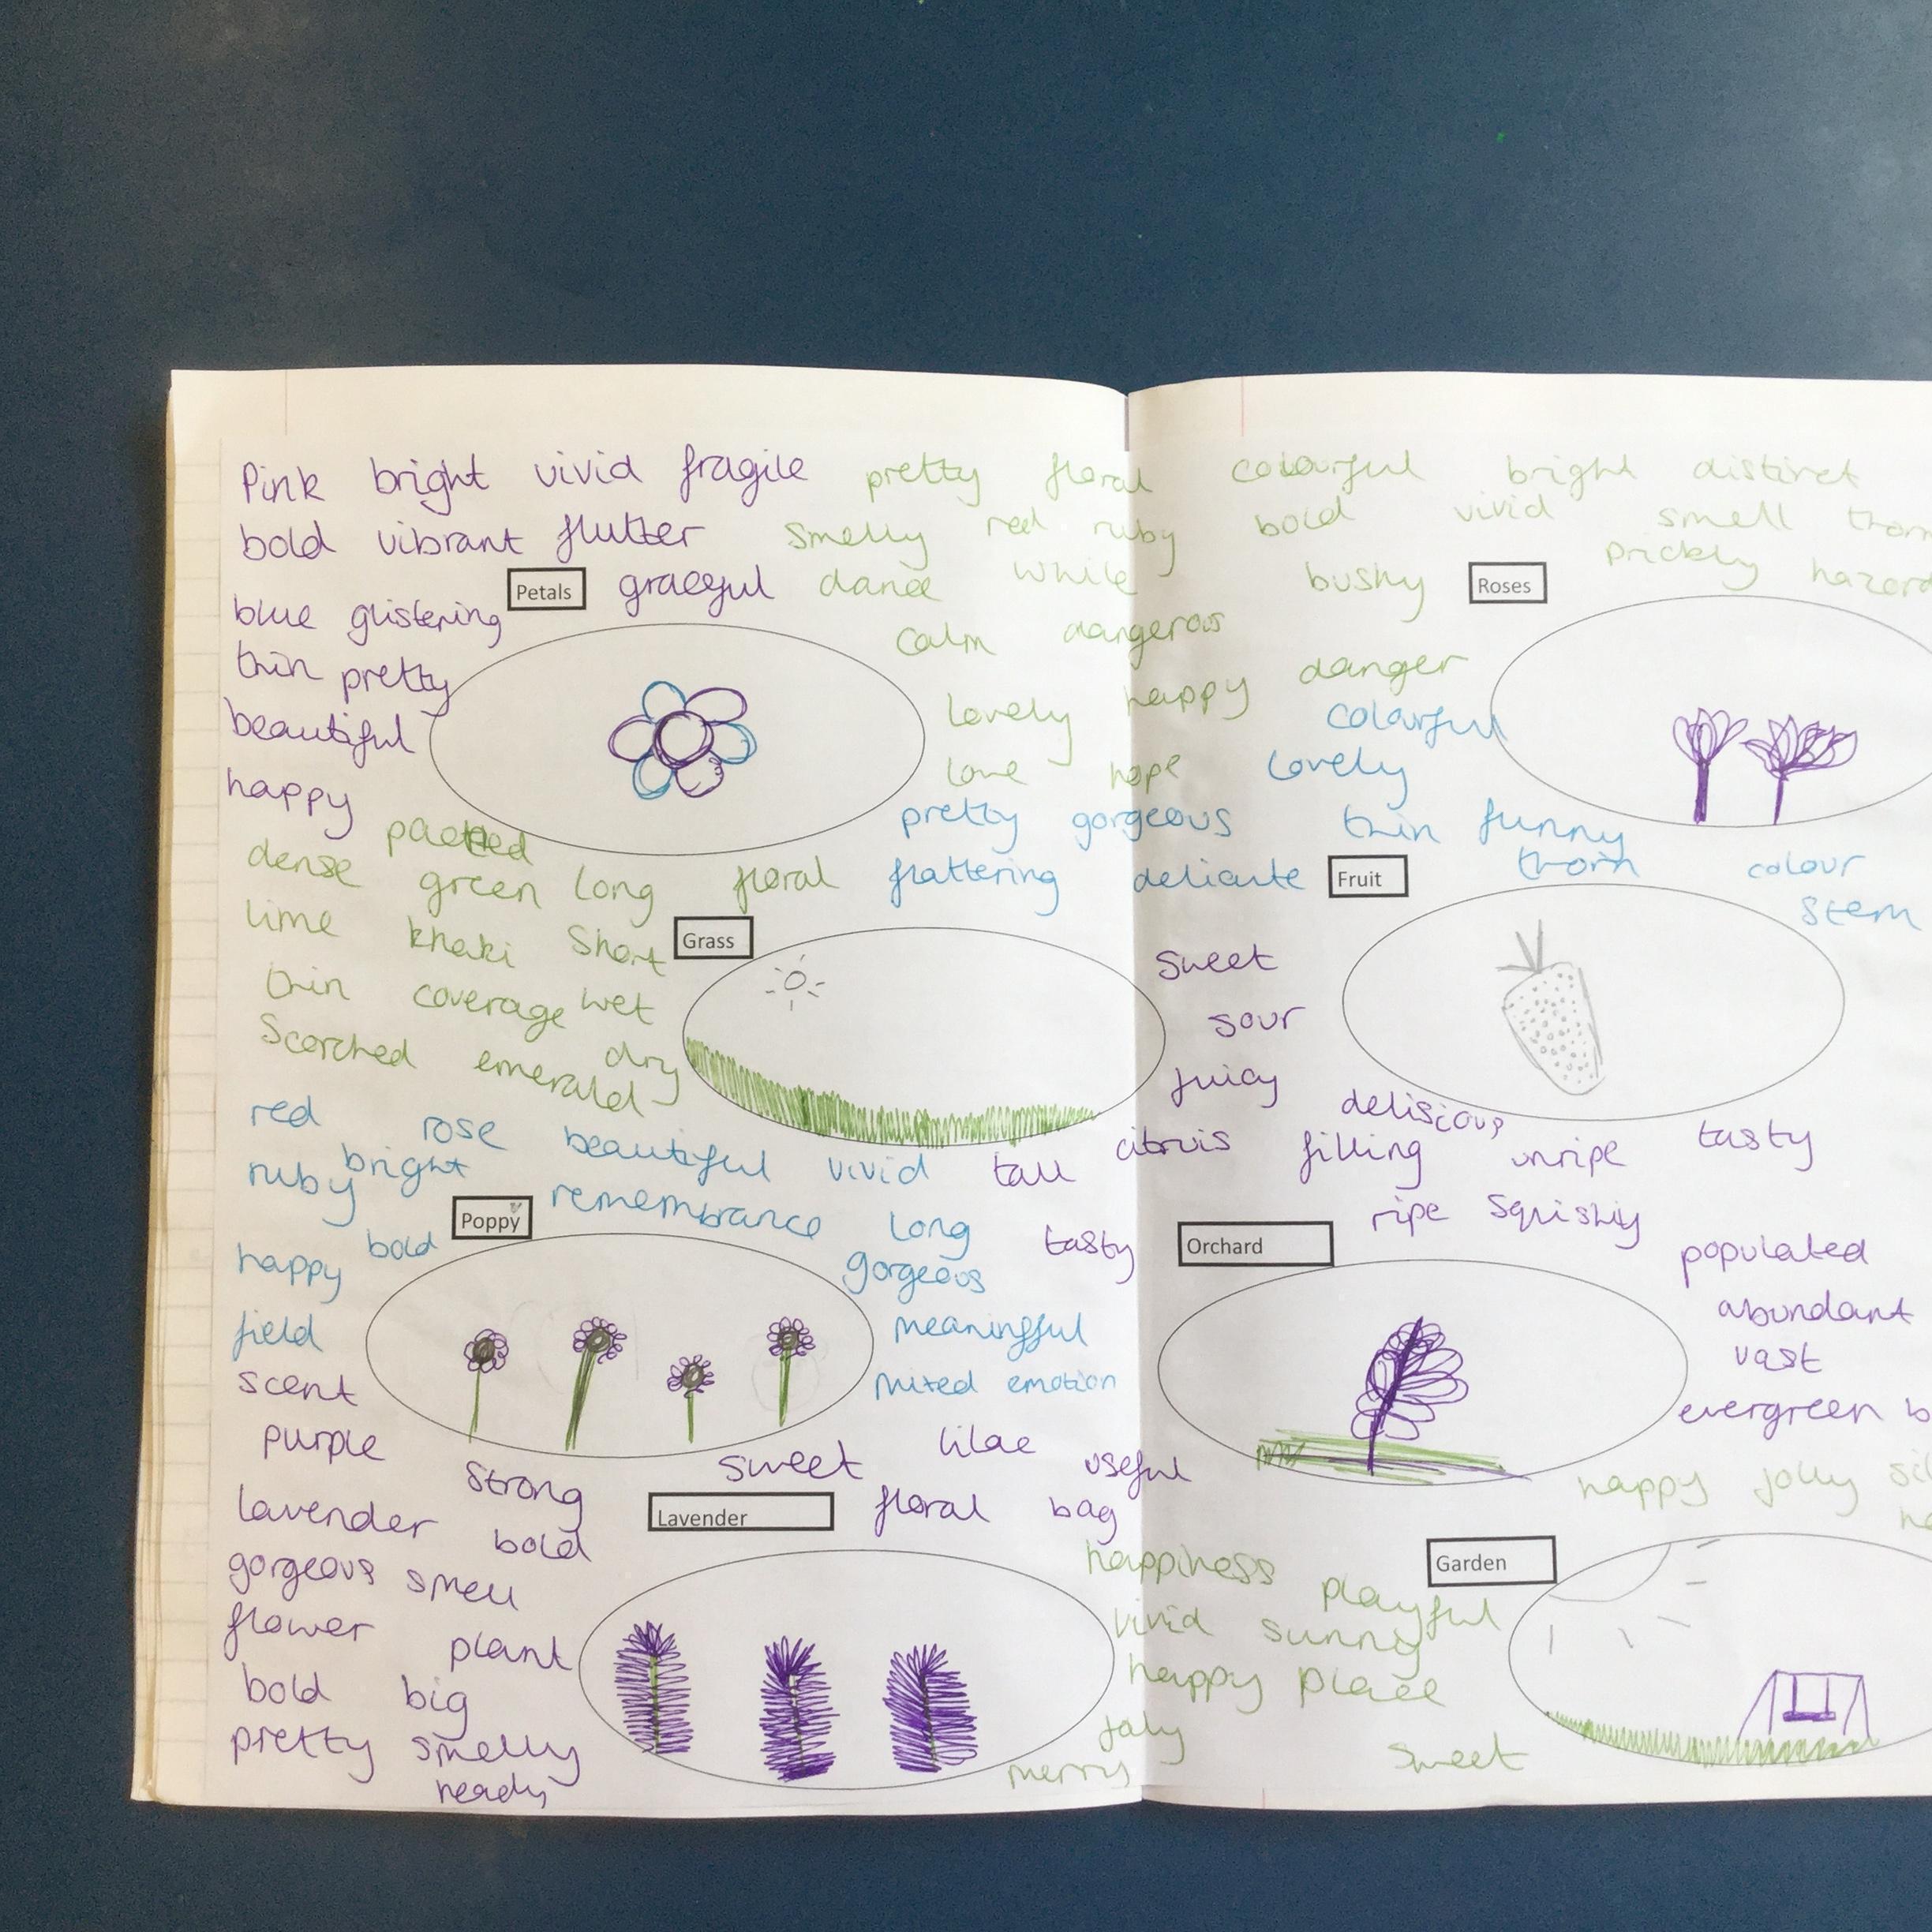 Pink bright vivid fragile pretty floral colourful bright distinct
bold vibrant flutter smelly red ruby bold vivid smell
Petals graceful dance while bushy Roses prickly
blue glistering calm dangerous
thin pretty danger
beautiful lovely happy colourful
happy love hope lovely
pretty gorgeous thin funny
dense green long floral flattering delicate Fruit thorn colour
stem
lime khaki short Grass
sweet
thin coverage wet sour
scorched emerald dry juicy
delisious
red rose beautiful vivid tall citruis filling unripe tasty
ruby bright
Poppy remembrance long tasty ripe squishy
happy bold gorgeous Orchard populated
field meaningful abundant
scent mixed emotion vast
purple evergreen
strong sweet lilac useful happy jolly
lavender bold Lavender floral bag
gorgeous smell happiness playful Garden
flower plant vivid sunny
bold big happy place
pretty smelly sweet
merry